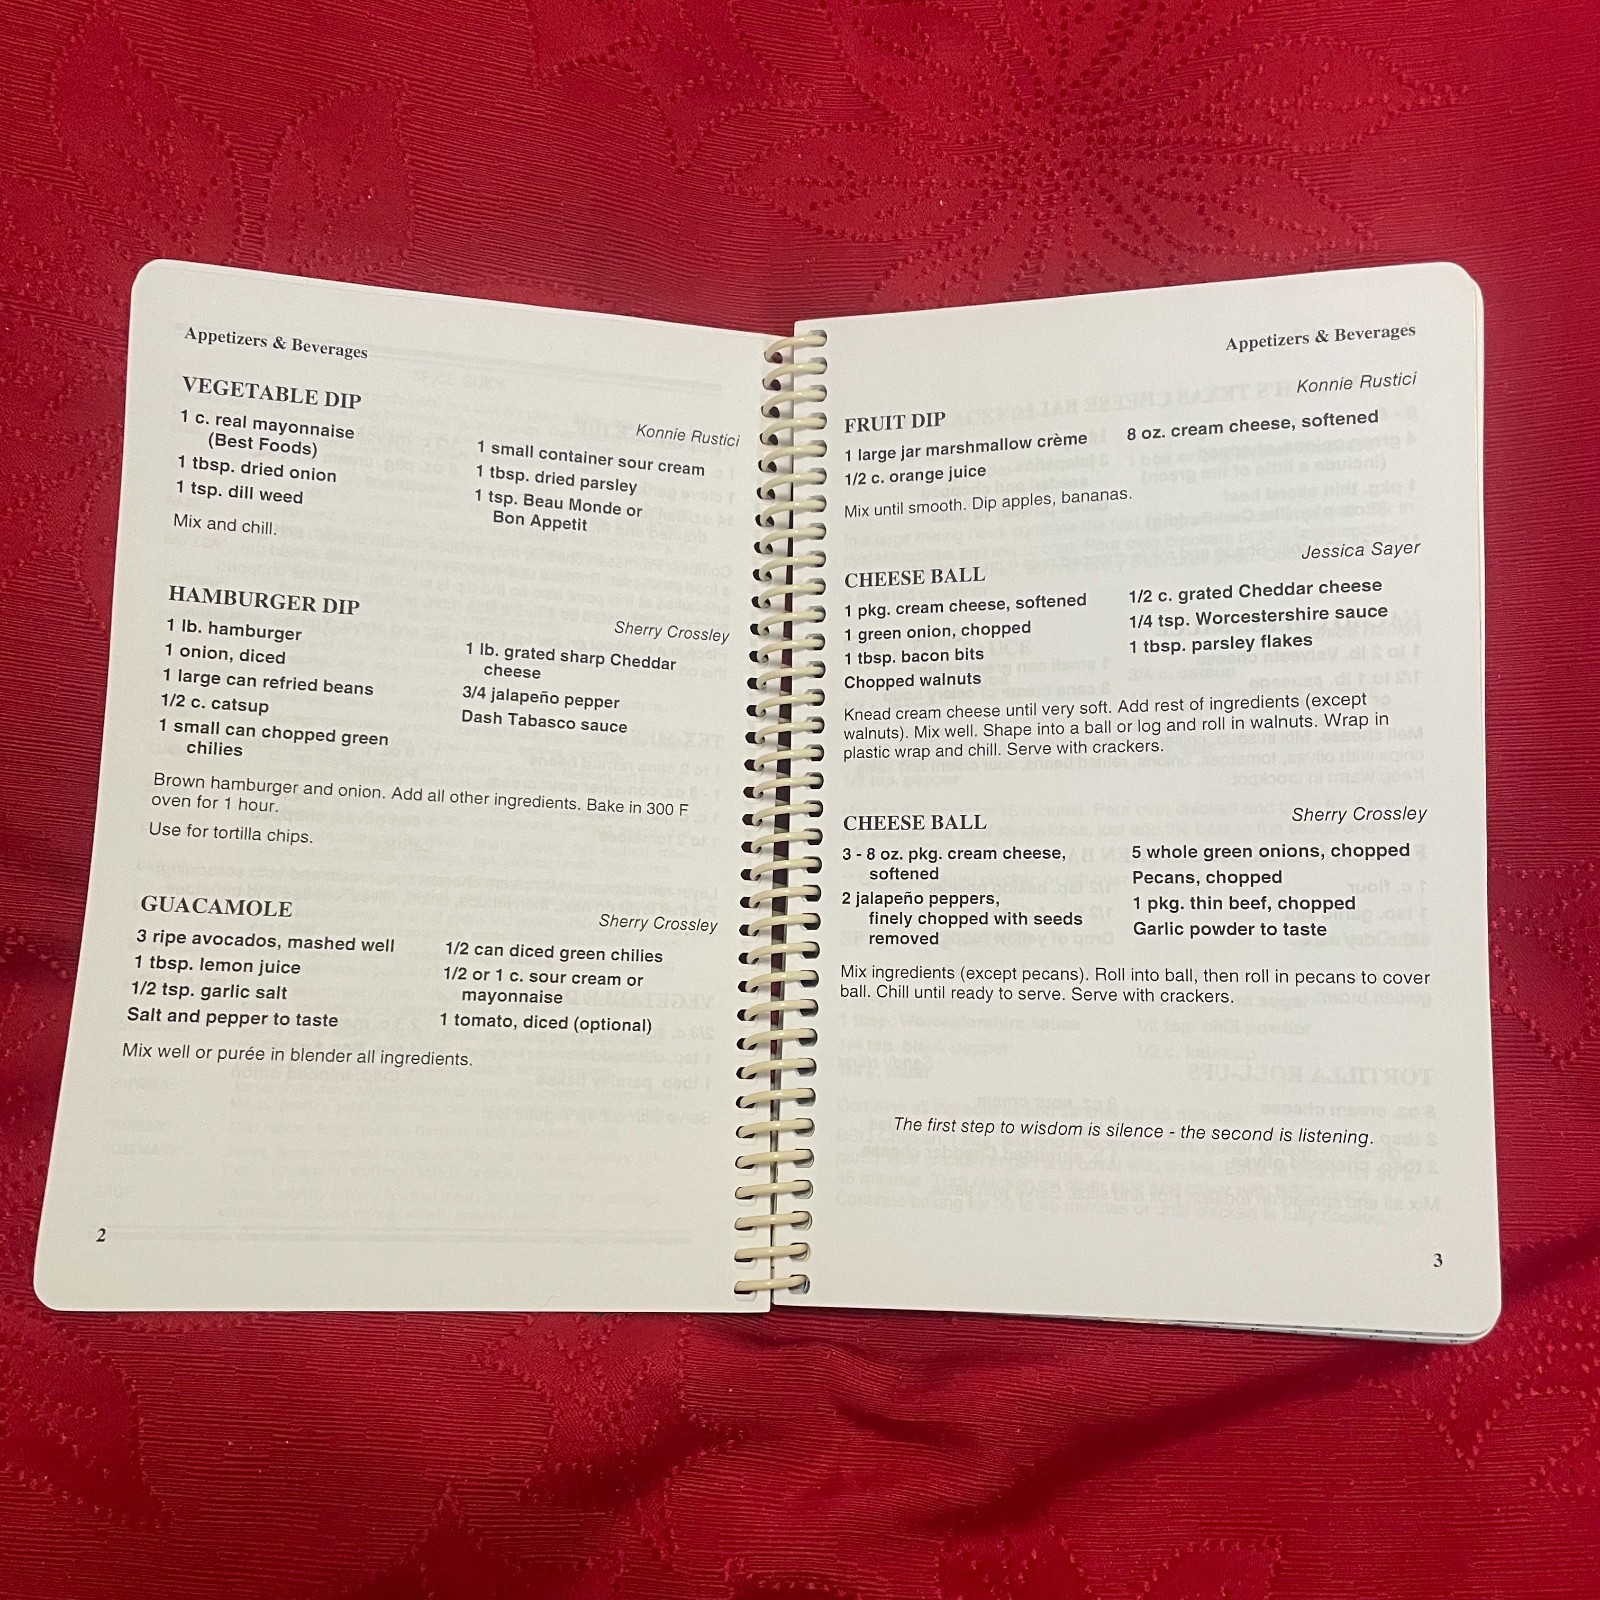 Appetizers & Beverages
VEGETABLE DIP
Konnie Rustici
1 c. real mayonnaise
(Best Foods)
1 tbsp. dried onion
1 tsp. dill weed
1 small container sour cream
1 tbsp. dried parsley
1 tsp. Beau Monde or
Bon Appetit
Mix and chill.
HAMBURGER DIP
Sherry Crossley
1 lb. hamburger
1 onion, diced
1 large can refried beans
1/2 c. catsup
1 small can chopped green
chilies
1 lb. grated sharp Cheddar
cheese
3/4 jalapeño pepper
Dash Tabasco sauce
Brown hamburger and onion. Add all other ingredients. Bake in 300 F
oven for 1 hour.
Use for tortilla chips.
GUACAMOLE
Sherry Crossley
3 ripe avocados, mashed well
1 tbsp. lemon juice
1/2 tsp. garlic salt
Salt and pepper to taste
1/2 can diced green chilies
1/2 or 1 c. sour cream or
mayonnaise
1 tomato, diced (optional)
Mix well or purée in blender all ingredients.
2
Appetizers & Beverages
Konnie Rustici
FRUIT DIP
1 large jar marshmallow crème
1/2 c. orange juice
8 oz. cream cheese, softened
Mix until smooth. Dip apples, bananas.
Jessica Sayer
CHEESE BALL
1 pkg. cream cheese, softened
1 green onion, chopped
1 tbsp. bacon bits
Chopped walnuts
1/2 c. grated Cheddar cheese
1/4 tsp. Worcestershire sauce
1 tbsp. parsley flakes
Knead cream cheese until very soft. Add rest of ingredients (except
walnuts). Mix well. Shape into a ball or log and roll in walnuts. Wrap in
plastic wrap and chill. Serve with crackers.
Sherry Crossley
CHEESE BALL
3 - 8 oz. pkg. cream cheese,
softened
2 jalapeño peppers,
finely chopped with seeds
removed
5 whole green onions, chopped
Pecans, chopped
1 pkg. thin beef, chopped
Garlic powder to taste
Mix ingredients (except pecans). Roll into ball, then roll in pecans to cover
ball. Chill until ready to serve. Serve with crackers.
The first step to wisdom is silence - the second is listening.
3